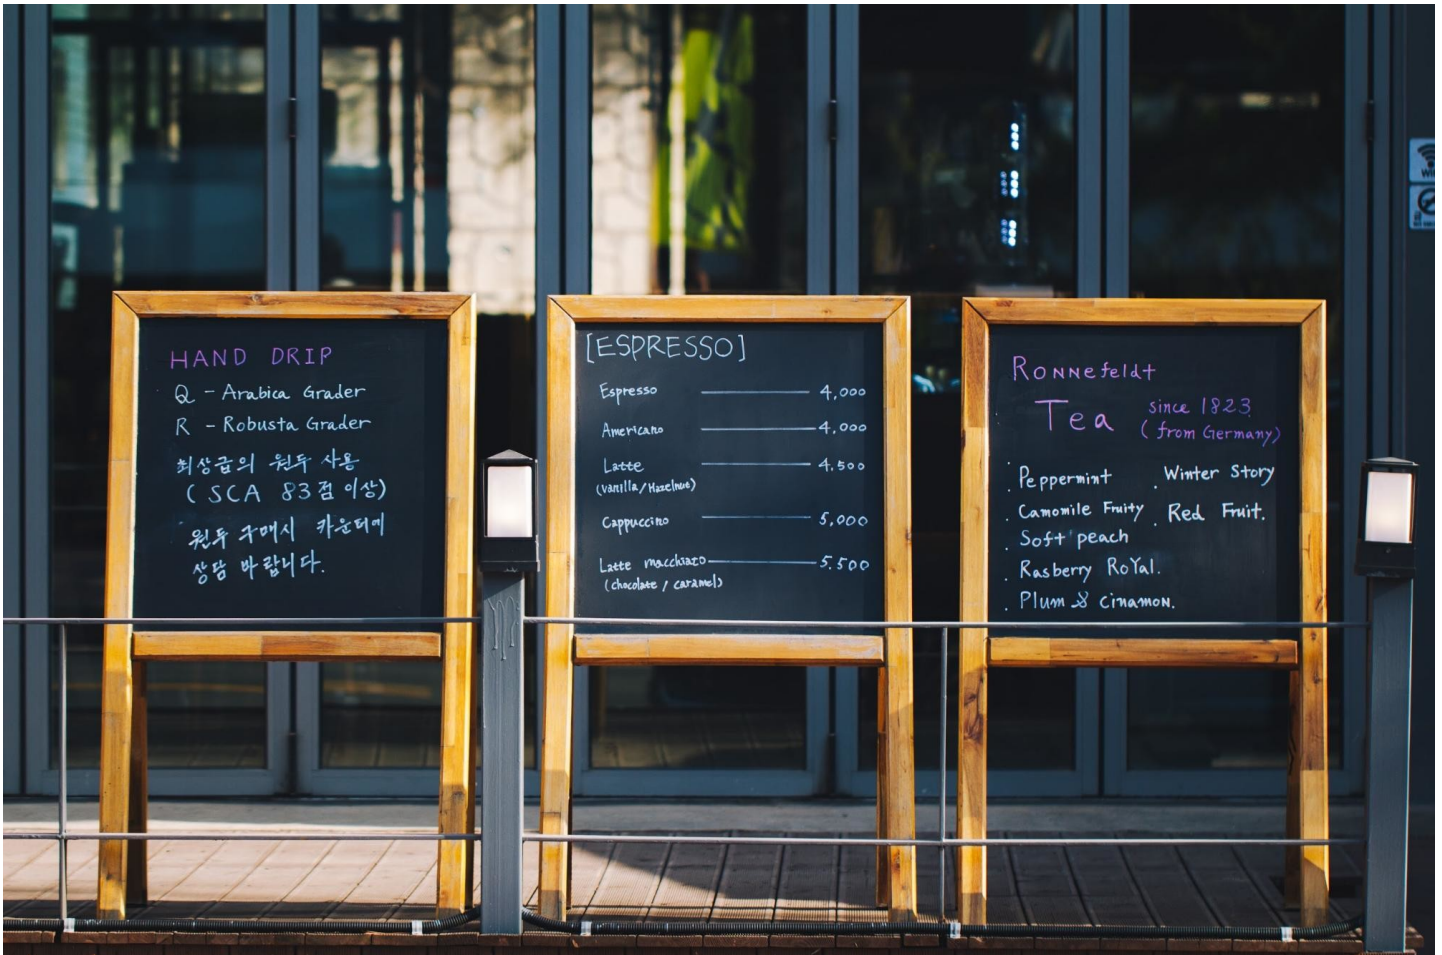 HAND DRIP
Q - Arabica Grader
R - Robusta Grader
최상급의 원두 사용
(SCA 83점 이상)
원두 구매시 카운터에
상담 바랍니다.
[ESPRESSO]
Espresso 4,000
Americano 4,000
Latte 4.500
(vanilla/Hazelnut)
Cappuccino 5,000
Latte macchiato 5.500
(chocolate / caramel)
Ronnefeldt
Tea since 1823
(from Germany)
. Peppermint . Winter Story
. Camomile Fruity . Red Fruit.
. Soft peach
. Rasberry RoYal.
. Plum & cinamon.